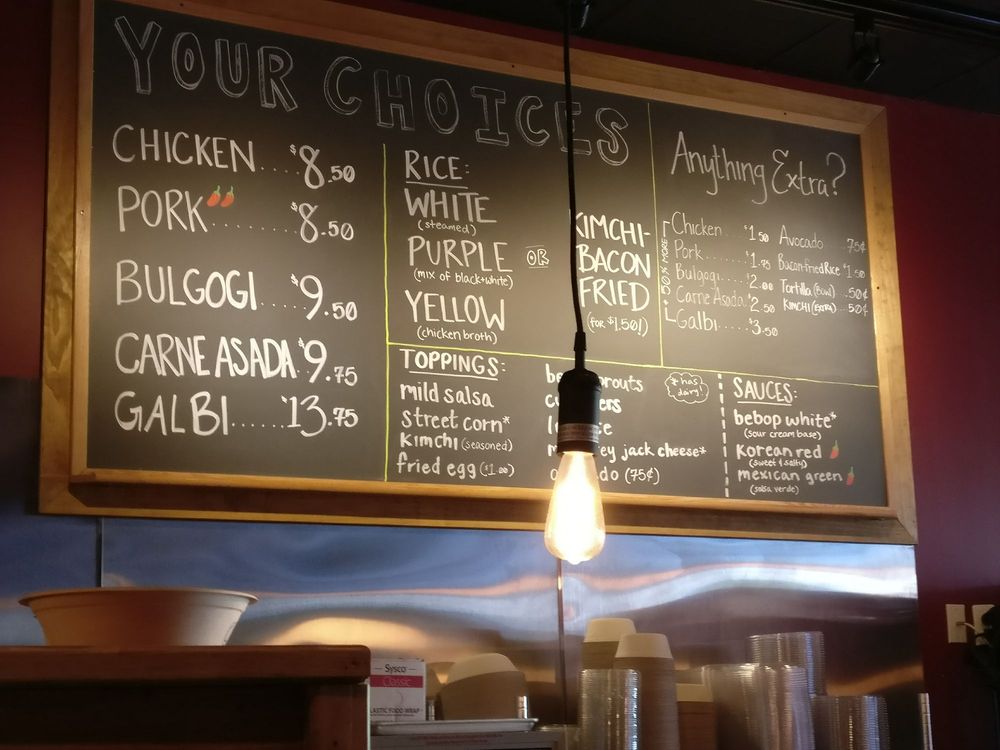 YOUR CHOICES
CHICKEN.... $8.50
PORK ...... $8.50
BULGOGI..... $9.50
CARNE ASADA $9.75
GALBI...... $13.75
RICE:
WHITE
(steamed)
PURPLE
(mix of black+white)
YELLOW
(chicken broth)
OR
KIMCHI-
BACON
FRIED
(for $1.50!)
TOPPINGS:
mild salsa
street corn*
kimchi (seasoned)
fried egg ($1.00)
jack cheese*
(75¢)
* has
dairy!
SAUCES:
bebop white*
(sour cream base)
Korean red
(sweet & salty)
mexican green
(salsa verde)
Anything Extra?
50% MORE
Chicken.... $1.50
Pork..... $1.75
Bulgogi... $2.00
Carne Asada $2.50
Galbi..... $3.50
Avocado .75¢
Bacon Fried Rice $1.50
Tortilla (Bowl) .50¢
KIMCHI (EXTRA) .50¢
Sysco
Classic
PLASTIC FOOD WRAP